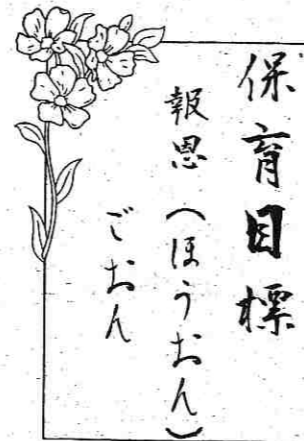 保育目標
報恩（ほうおん）
ごおん